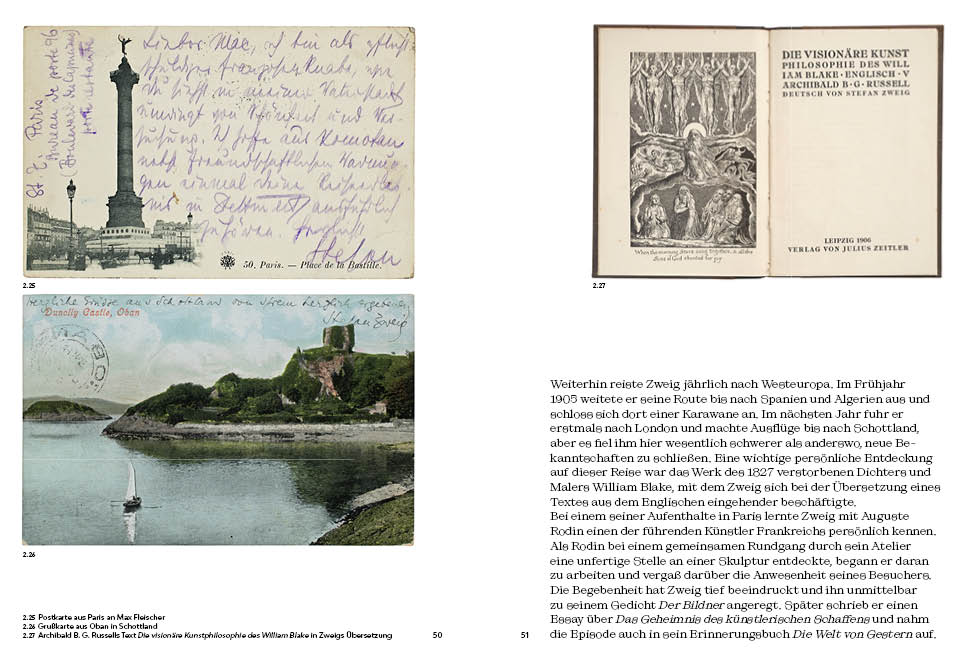 St. Z. Paris
Bureau de poste 96
(Boulevard des Capucines)
poste restante
Lieber Mac, ich bin als
in meiner Vaterstadt
von Schönheit und Ver-
suchung. Ich hoffe aus Komotau
nebst freundschaftlichen
gen einmal deine
in ausführlich
zu hören. Herzlichst
Stefan
50. Paris. — Place de la Bastille.
2.25
Herzliche Grüsse aus Schottland von Ihrem herzlich ergebenen
Stefan Zweig
Dunolly Castle, Oban
OBAN
2.26
2.25 Postkarte aus Paris an Max Fleischer
2.26 Grußkarte aus Oban in Schottland
2.27 Archibald B. G. Russells Text Die visionäre Kunstphilosophie des William Blake in Zweigs Übersetzung
50
When the morning Stars sang together, & all the
Sons of God shouted for joy
DIE VISIONÄRE KUNST
PHILOSOPHIE DES WILL
IAM BLAKE · ENGLISCH · V
ARCHIBALD B · G · RUSSELL
DEUTSCH VON STEFAN ZWEIG
LEIPZIG 1906
VERLAG VON JULIUS ZEITLER
2.27
Weiterhin reiste Zweig jährlich nach Westeuropa. Im Frühjahr
1905 weitete er seine Route bis nach Spanien und Algerien aus und
schloss sich dort einer Karawane an. Im nächsten Jahr fuhr er
erstmals nach London und machte Ausflüge bis nach Schottland,
aber es fiel ihm hier wesentlich schwerer als anderswo, neue Be-
kanntschaften zu schließen. Eine wichtige persönliche Entdeckung
auf dieser Reise war das Werk des 1827 verstorbenen Dichters und
Malers William Blake, mit dem Zweig sich bei der Übersetzung eines
Textes aus dem Englischen eingehender beschäftigte.
Bei einem seiner Aufenthalte in Paris lernte Zweig mit Auguste
Rodin einen der führenden Künstler Frankreichs persönlich kennen.
Als Rodin bei einem gemeinsamen Rundgang durch sein Atelier
eine unfertige Stelle an einer Skulptur entdeckte, begann er daran
zu arbeiten und vergaß darüber die Anwesenheit seines Besuchers.
Die Begebenheit hat Zweig tief beeindruckt und ihn unmittelbar
zu seinem Gedicht Der Bildner angeregt. Später schrieb er einen
Essay über Das Geheimnis des künstlerischen Schaffens und nahm
die Episode auch in sein Erinnerungsbuch Die Welt von Gestern auf.
51